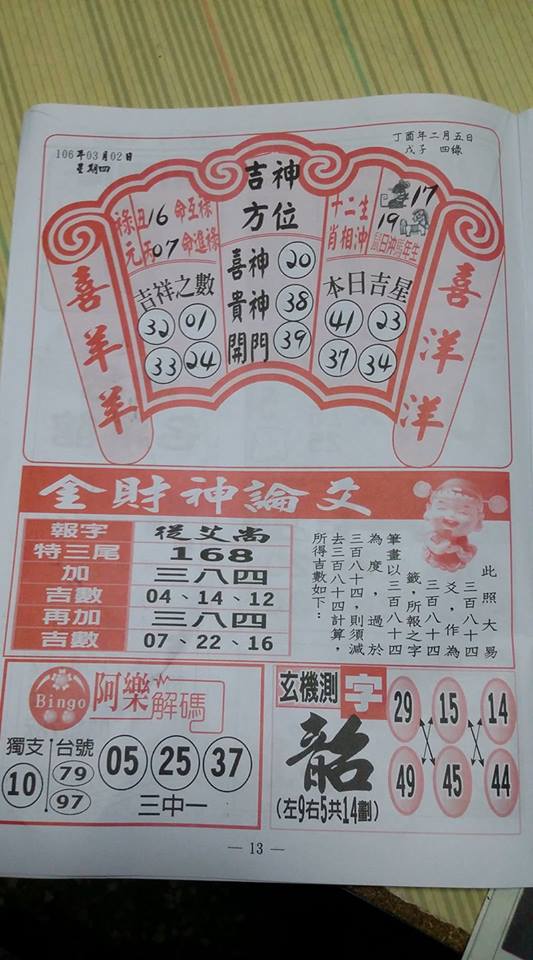 106年03月02日
星期四
丁酉年二月五日
戊子 四綠
吉神
方位
喜神 20
貴神 38
開門 39
祿丑16命互祿
元丙07命進祿
吉祥之數
32 01
33 24
十二生
肖相沖
17
19
鼠日沖馬年生
本日吉星
41 23
37 34
喜羊羊
喜洋洋
金財神論爻
報字 從艾尚
特三尾 168
加 三八四
吉數 04、14、12
再加 三八四
吉數 07、22、16
此照大易
三百八十四
爻,作為
三百八十四
籤,所報之字
筆畫以三百八十四
為度,過於
三百八十四,則須減
去三百八十四計算,
所得吉數如下:
Bingo
阿樂解碼
獨支
10
台號
79
97
05 25 37
三中一
玄機測字
韶
(左9右5共14劃)
29 15 14
49 45 44
— 13 —